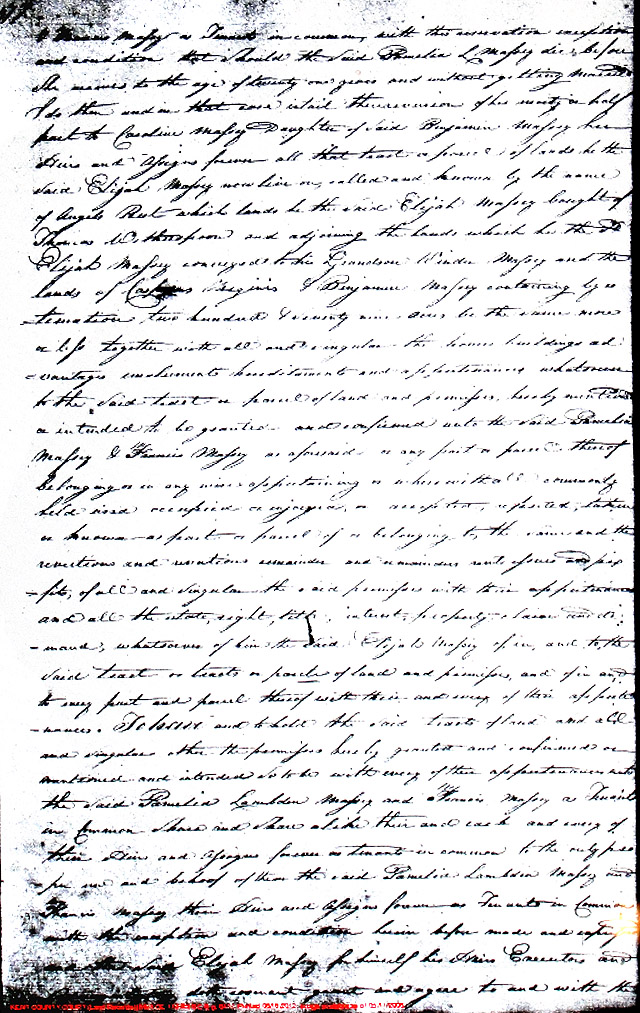 & Francis Massey as Tenants in common, with this reservation exception
and condition that should the Said Pamelia L Massey die before
She arrives to the age of twenty one years and without getting married
I do then and in that case intail the reversion of her moiety or half
part to Caroline Massey Daughter of Said Benjamin Massey her
Heirs and Assigns forever all that tract or parcel of lands he the
Said Elijah Massey now live on, called and known by the name
of Angels Rest which lands he the Said Elijah Massey bought of
Thomas and adjoining the lands which he the Sd
Elijah Massey conveyed to his Grandson Winder Massey and the
lands of & Benjamin Massey containing by es
-timation two hundred & seventy nine acres be the same more
or less together with all and singular the houses buildings ad
-vantages emoluments hereditaments and appurtenances whatsoever
to the Said tract or parcel of land and premises, hereby mentioned
or intended to be granted and confirmed unto the Said Pamelia
Massey & Francis Massey as aforesaid or any part or parcel thereof
belonging or in any wise appertaining or where with all commonly
held used occupied or enjoyed, or accepted, reputed, taken
or known as part or parcel of or belonging to, the same and the
revertions and revertions remainder and remainders rents issues and pro
-fits, of all and singular the said premises with their appurtenances
and all the estate, right, title, interest, property, claim and de
-mand, whatsoever of him the Said Elijah Massey of, in, and to, the
Said tract or tracts or parcels of land and premises, and of in and
to every part and parcel thereof with their and every of their appurte
-nances. To have and to hold the said tracts of land and all
and singular other the premises hereby granted and confirmed or
mentioned and intended So to be with every of their appurtenances unto
the Said Pamelia Lambden Massey and Francis Massey as Tenants
in Common Share and Share alike their and each and every of
their Heirs and Assigns forever as tenants in common to the only pro
-per use and behoof of them the said Pamelia Lambden Massey and
Francis Massey their Heirs and Assigns forever as Tenants in Common
with the exception and condition herein before made and
and the Said Elijah Massey for himself his Heirs Executors and
covenant grant and agree to and with the